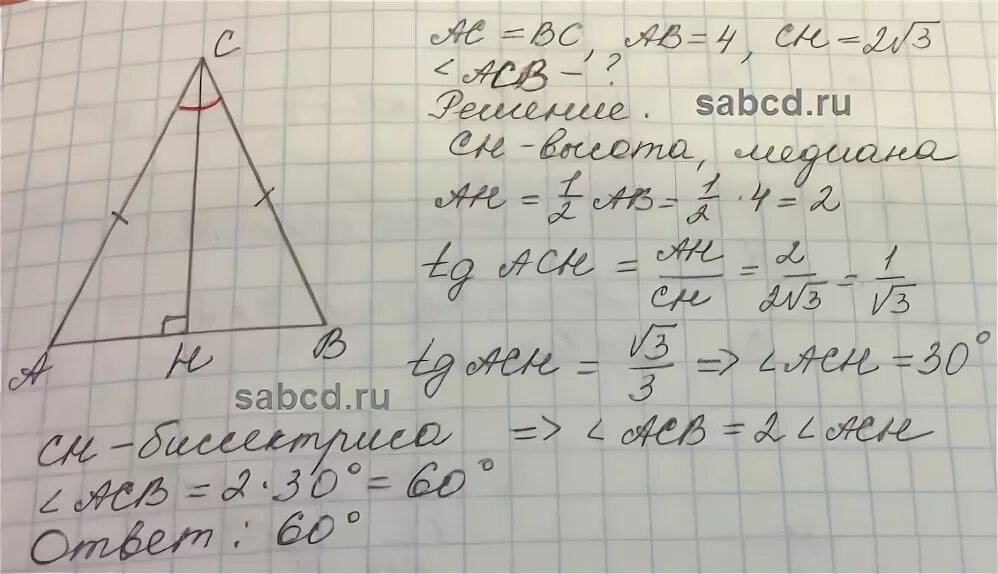 C
A
H
B
AC = BC, AB = 4, CH = 2√3
∠ACB - ?
Решение.
sabcd.ru
CH - высота, медиана
AH = 1/2 AB = 1/2 · 4 = 2
tg ACH = AH/CH = 2/2√3 = 1/√3
tg ACH = √3/3 => ∠ACH = 30°
sabcd.ru
CH - биссектриса => ∠ACB = 2∠ACH
∠ACB = 2 · 30° = 60°
Ответ: 60°